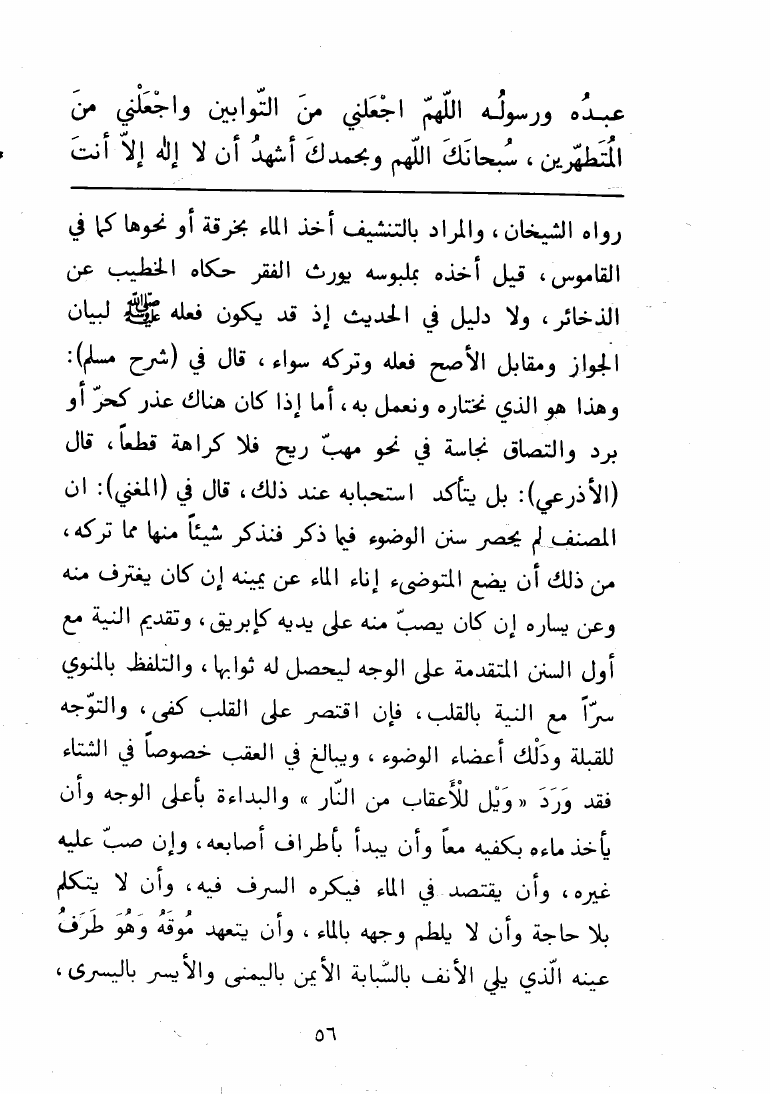 عبـدُه ورسولُـه اللّهمّ اجْعَلني منَ التّوابين واجْعَلْني منَ
المُتَطهّرين ، سُبحانَكَ اللّهم وبحمدكَ أشهدُ أن لا إله إلاّ أنتَ
رواه الشيخان ، والمراد بالتنشيف أخذ الماء بخرقة أو نحوها كما في
القاموس ، قيل أخذه بملبوسه يورث الفقر حكاه الخطيب عن
الذخائر ، ولا دليل في الحديث إذ قد يكون فعله ﷺ لبيان
الجواز ومقابل الأصح فعله وتركه سواء ، قال في (شرح مسلم):
وهذا هو الذي نختاره ونعمل به ، أما إذا كان هناك عذر كحرّ أو
برد والتصاق نجاسة في نحو مهبّ ريح فلا كراهة قطعاً ، قال
(الأذرعي): بل يتأكد استحبابه عند ذلك ، قال في (المغني): ان
المصنف لم يحصر سنن الوضوء فيما ذكر فنذكر شيئاً منها مما تركه ،
من ذلك أن يضع المتوضىء إناء الماء عن يمينه إن كان يغترف منه
وعن يساره إن كان يصبّ منه على يديه كإبريق ، وتقديم النية مع
أول السنن المتقدمة على الوجه ليحصل له ثوابها ، والتلفظ بالمنوي
سرّاً مع النية بالقلب ، فإن اقتصر على القلب كفى ، والتوّجه
للقبلة ودَلْك أعضاء الوضوء ، ويبالغ في العقب خصوصاً في الشتاء
فقد وَرَدَ « وَيْل للْأَعقاب من النّار » والبداءة بأعلى الوجه وأن
يأخذ ماءه بكفيه معاً وأن يبدأ بأطراف أصابعه ، وإن صبّ عليه
غيره ، وأن يقتصد في الماء فيكره السرف فيه ، وأن لا يتكلم
بلا حاجة وأن لا يلطم وجهه بالماء ، وأن يتعهد مُوقَهُ وَهُوَ طَرَفُ
عينه الّذي يلي الأنف بالسّبابة الأيمن باليمنى والأيسر باليسرى ،
٥٦